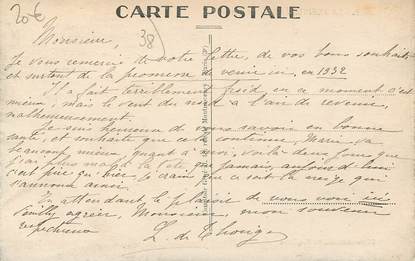 CARTE POSTALE
20€
38
Monsieur,
Je vous remercie de votre lettre, de vos bons souhaits
et surtout de la promesse de venir ici, en 1932
Il a fait terriblement froid, en ce moment c'est
mieux, mais le vent du nord a l'air de revenir,
malheureusement.
Je suis heureux de vous savoir en bonne
santé, et souhaite que cela continue. Marie va
beaucoup mieux, quant à moi, voilà deux fois que
j'ai plus mal à la tête que jamais, aujourd'hui
c'est pire qu'hier, je crains que ce soit la neige qui
s'annonce ainsi.
En attendant le plaisir de vous voir ici
Veuillez agréer, Monsieur, mon souvenir
respectueux
L. de